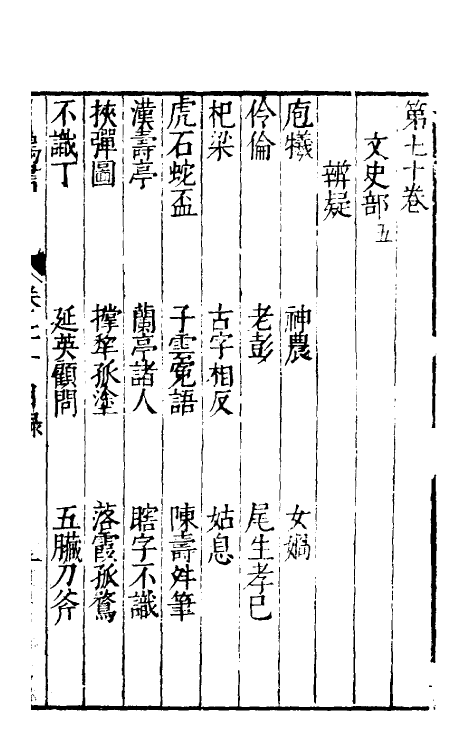 第七十卷
文史部五
辨疑
庖犧 神農 女媧
伶倫 老彭 尾生孝已
杞梁 古字相反 姑息
虎石蛇盃 子雲寃語 陳壽舛筆
漢壽亭 蘭亭諸人 瞎字不識
挾彈圖 撑犂孤塗 落霞孤鶩
不識丁 延英顧問 五臟刀斧